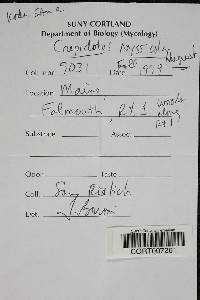 SUNY CORTLAND
Department of Biology (Mycology)
Crepidotus
Coll. no. 9031 Date 1999 August
Location Maine,
Falmouth, Rt. 1 woods
along
Rt 1
Substrate Assoc.
Odor Taste
Coll. Sam Ristich
Det.
CORT007201